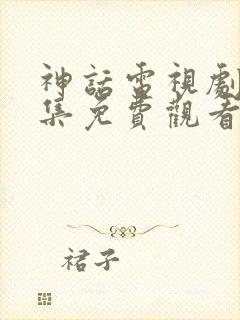 神話電視劇
集免費觀看
裙子